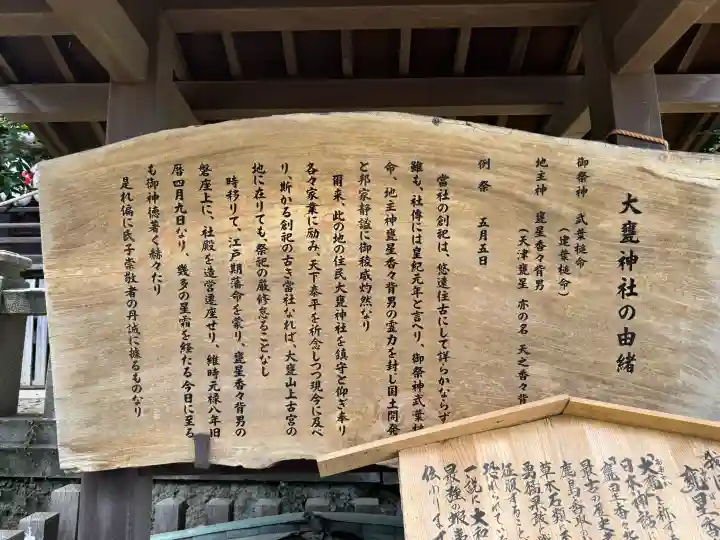 大甕神社の由緒
御祭神 武葉槌命
(建葉槌命)
地主神 甕星香々背男
(天津甕星 亦の名 天之香々背
例祭 五月五日
當社の創祀は、悠遠往古にして詳らかならず
雖も、社傳には皇紀元年と言へり、御祭神武葉槌
命、地主神甕星香々背男の霊力を封し国土開発
と邦家静謐に御稜威灼然なり
爾来、此の地の住民大甕神社を鎮守と仰ぎ奉り
各々家業に励み、天下泰平を祈念しつつ現今に及べ
り、斯かる創祀の古き當社なれば、大甕山上古宮の
地に在りても祭祀の厳修怠ることなし
時移りて、江戸期藩命を蒙り、甕星香々背男の
磐座上に、社殿を造営遷座せり、維時元禄八年旧
暦四月九日なり、幾多の星霜を経たる今日に至る
も御神徳著く赫々たり
是れ偏に氏子崇敬者の丹誠に據るものなり
我
甕星
大甕
日本神話
甕星香々
最古の歴史
鹿島
草木万類
勇猛果敢
征服すること
一説に大和
最強の
伝わります